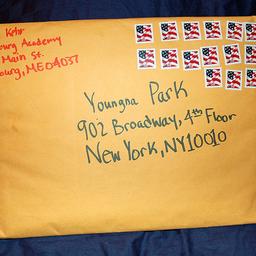 Kohr
burg Academy
Main St.
burg, ME 04037
Youngna Park
902 Broadway, 4th Floor
New York, NY 10010